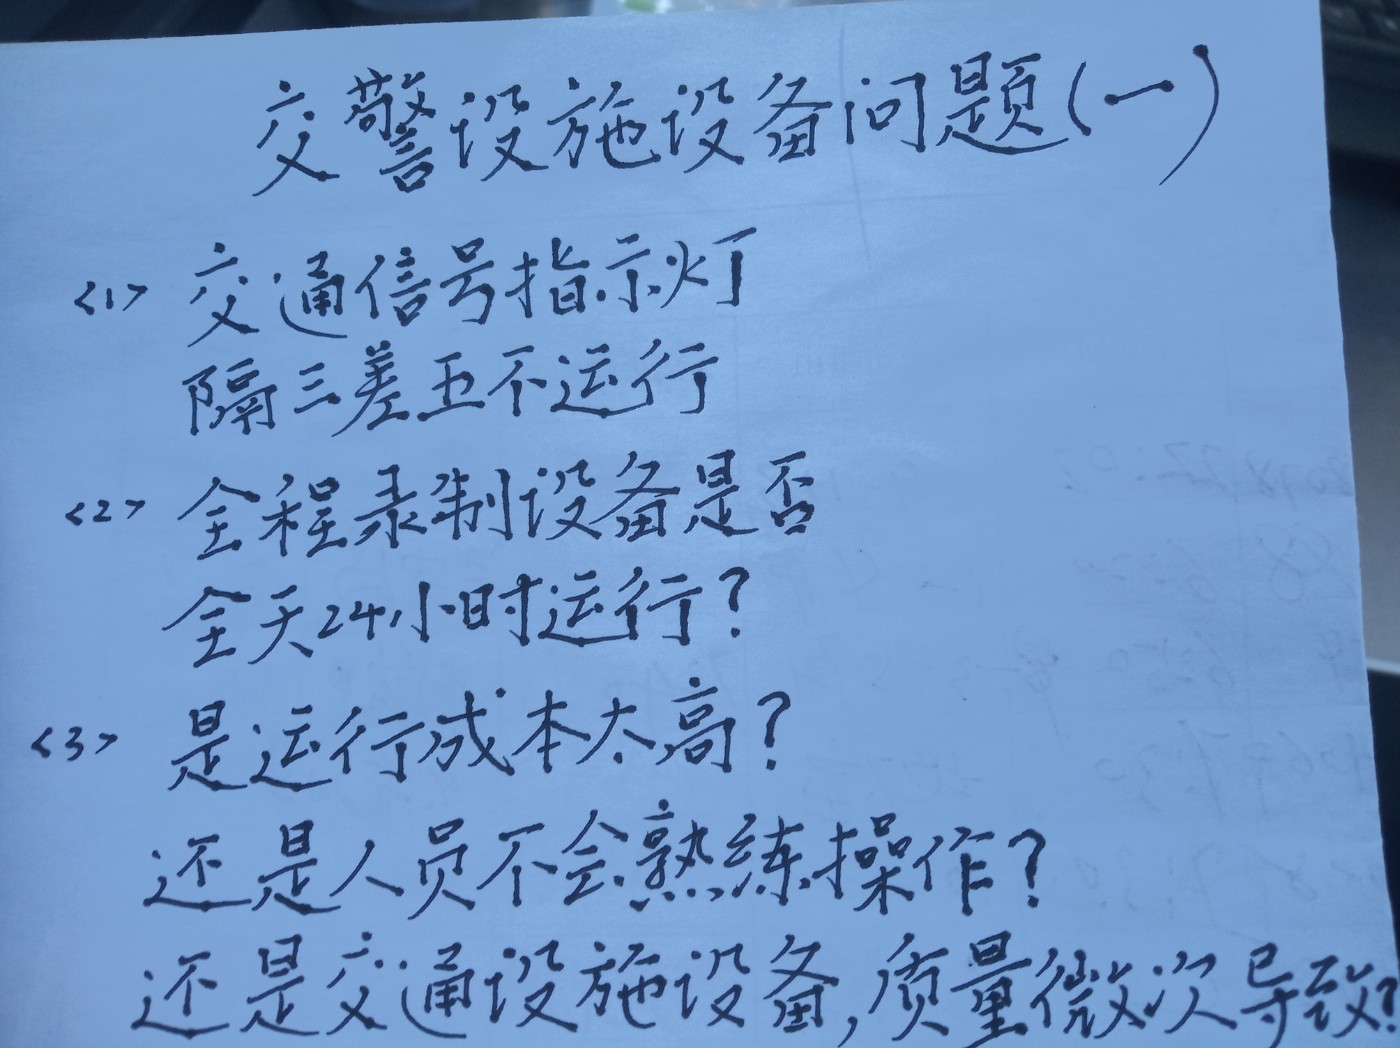 交警设施设备问题(一)
<1> 交通信号指示灯
隔三差五不运行
<2> 全程录制设备是否
全天24小时运行?
<3> 是运行成本太高?
还是人员不会熟练操作?
还是交通设施设备,质量微次导致?